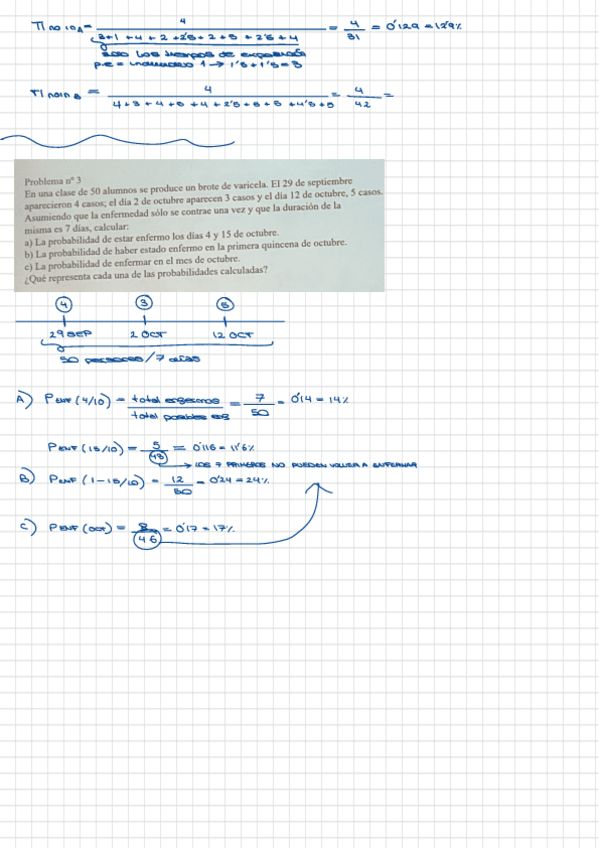 4
TI no ioA = = 4/31 = 0'129 = 12'9%
3+1 +4 + 2 +2'5+ 2 +5 + 2'5 + 4
solo los tiempos de exposición
p.e = individuo 1 → 1'5+1'5 = 3
4
TI noin B = = 4/42 =
4+3+4+5+4+2'5+5+5 +4'5+5
Problema nº 3
En una clase de 50 alumnos se produce un brote de varicela. El 29 de septiembre
aparecieron 4 casos; el día 2 de octubre aparecen 3 casos y el día 12 de octubre, 5 casos.
Asumiendo que la enfermedad sólo se contrae una vez y que la duración de la
misma es 7 días, calcular:
a) La probabilidad de estar enfermo los días 4 y 15 de octubre.
b) La probabilidad de haber estado enfermo en la primera quincena de octubre.
c) La probabilidad de enfermar en el mes de octubre.
¿Qué representa cada una de las probabilidades calculadas?
4 3 5
29 SEP 2 OCT 12 OCT
50 personas / 7 días
A) PENF (4/10) = total enfermos / total posibles enf = 7/50 = 0'14 = 14%
PENF (15/10) = 5/43 = 0'116 = 11'6%
→ LOS 7 PRIMEROS NO PUEDEN VOLVER A ENFERMAR
B) PENF (1-15/10) = 12/50 = 0'24 = 24%
C) PENF (OCT) = 8/46 = 0'17 = 17%